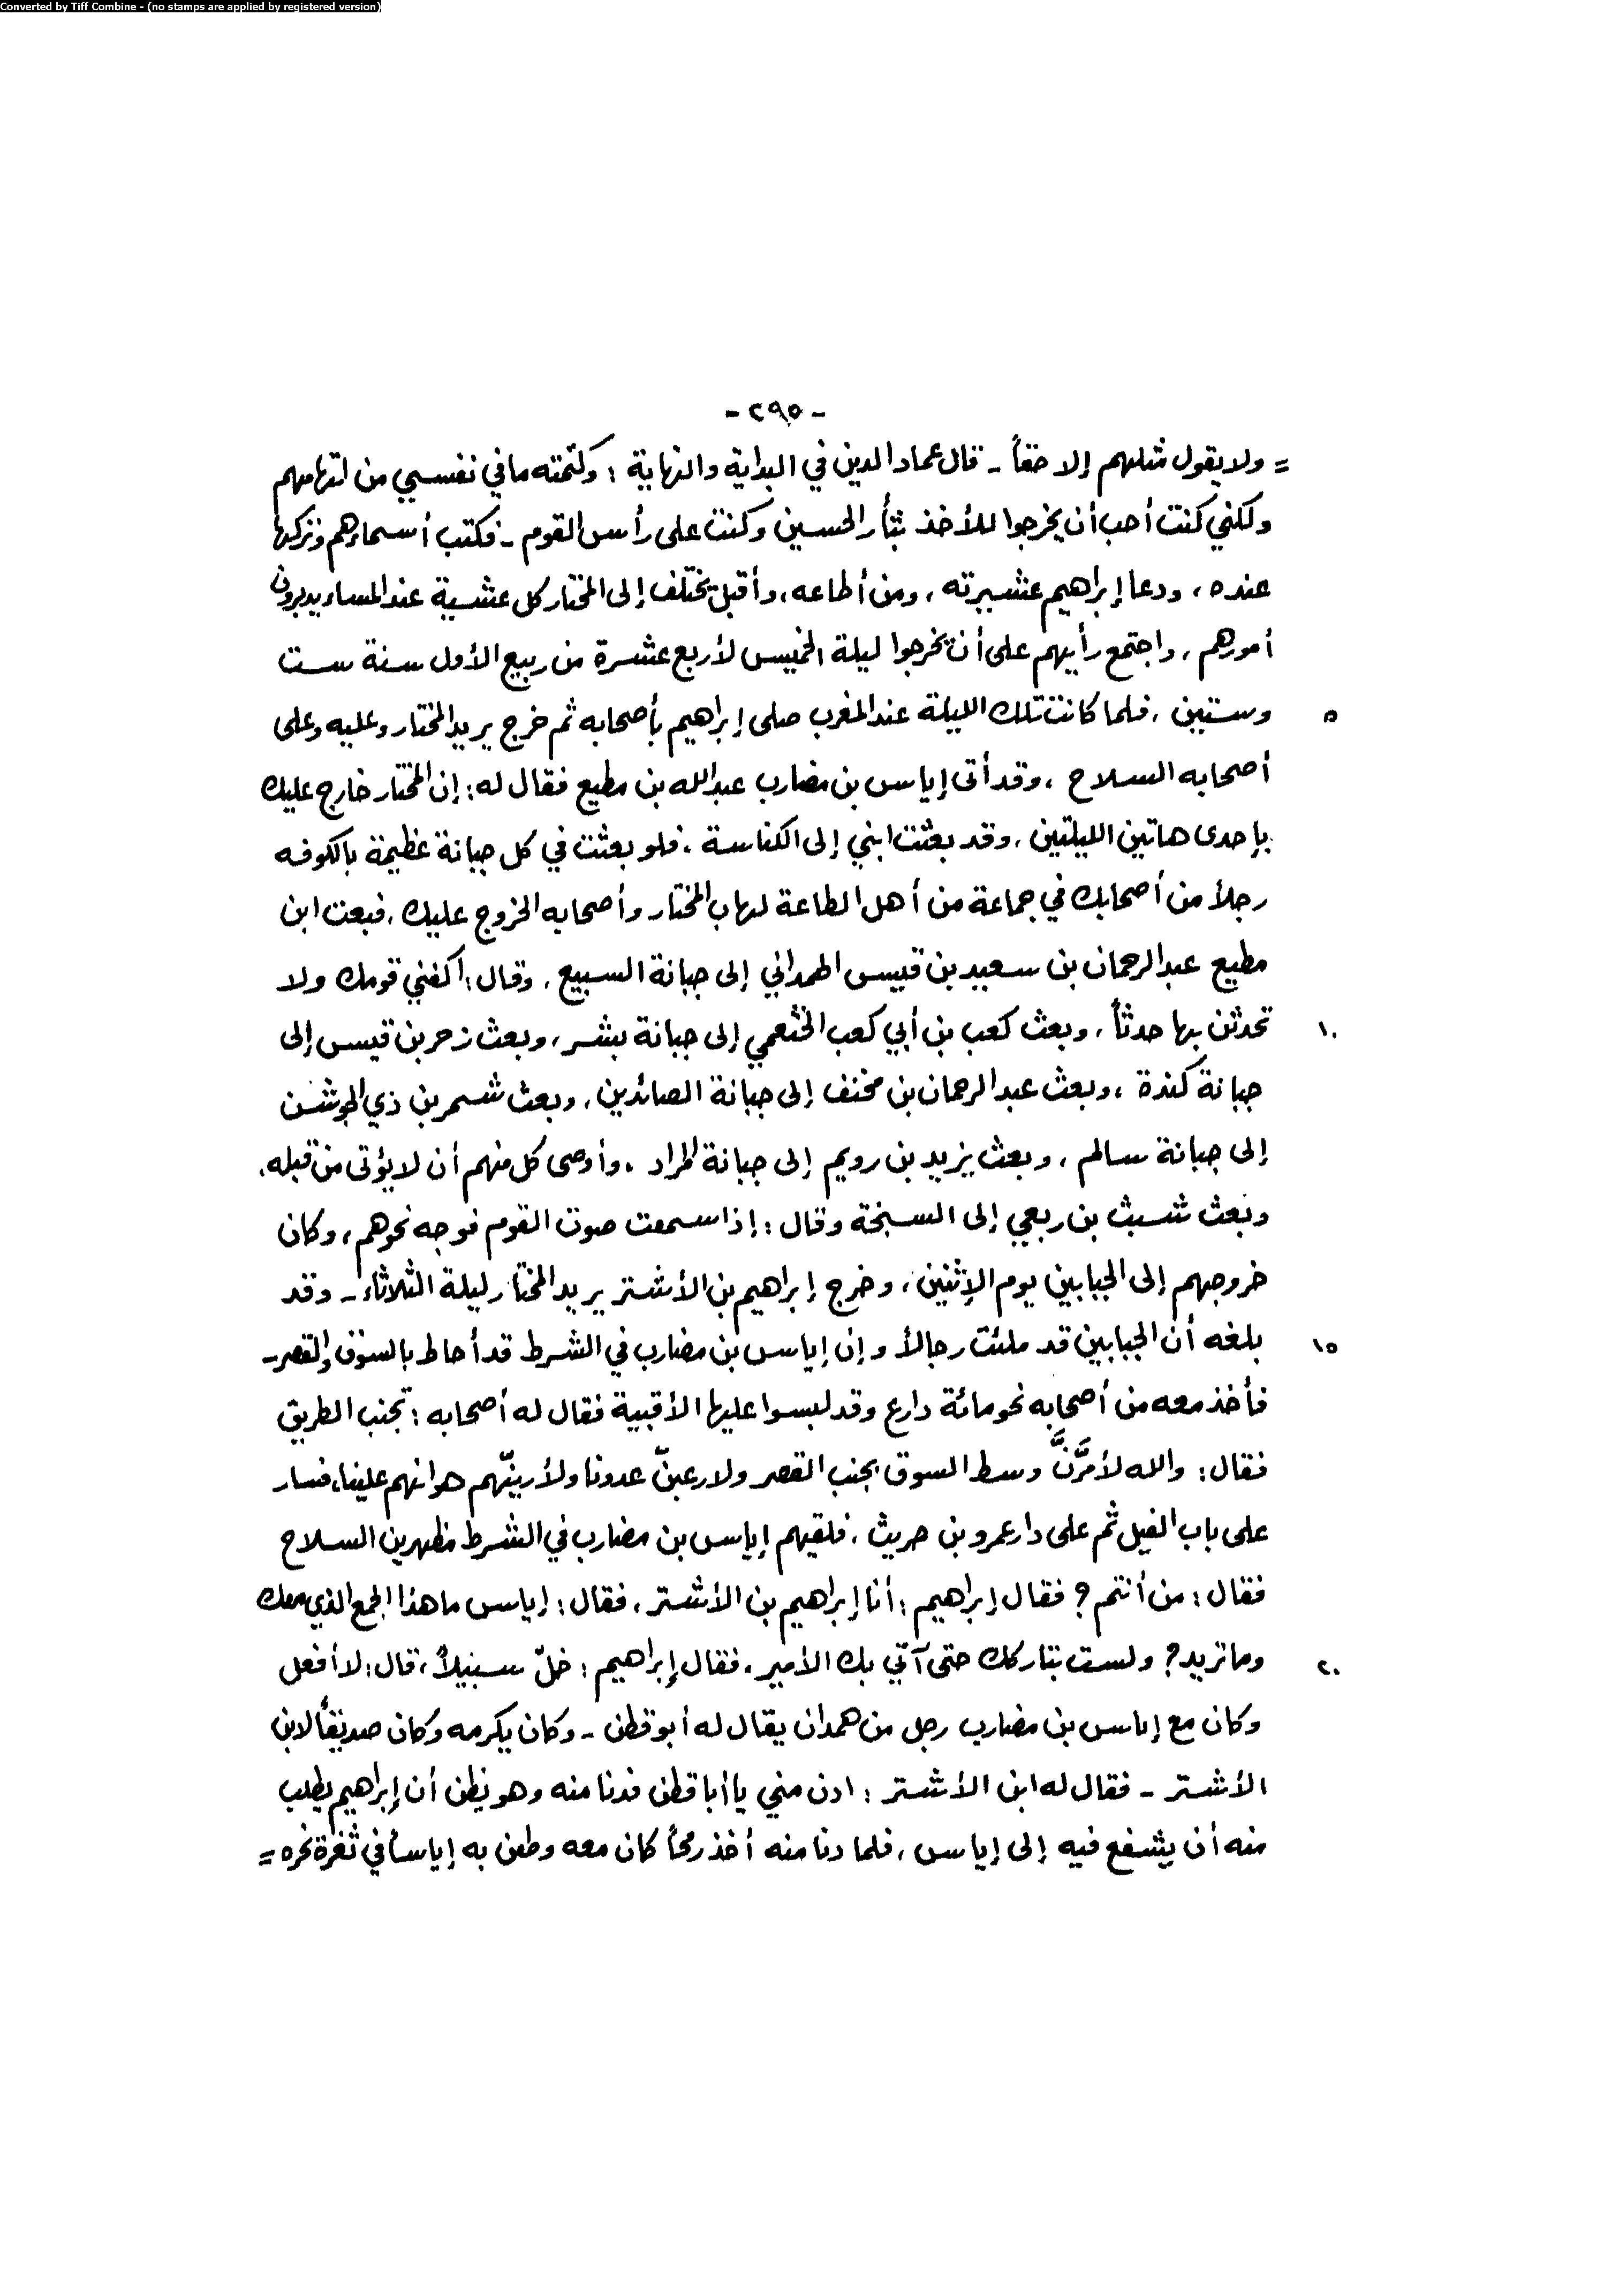 Converted by Tiff Combine - (no stamps are applied by registered version)
- ٢٩٥ -
= ولا يقول مثلهم إلا حقاً - قال عماد الدين في البداية والنهاية : وكتمته ما في نفسي من اتهامهم
ولكني كنت أحب أن يخرجوا للأخذ بثأر الحسين وكنت على رأس القوم - فكتب أسماءهم وتركها
عنده ، ودعا إبراهيم عشيرته ، ومن أطاعه ، وأقبل يختلف إلى المختار كل عشية عند المساء يديرون
أمورهم ، واجتمع رأيهم على أن يخرجوا ليلة الخميس لأربع عشرة من ربيع الأول سنة ست
٥ وستين ، فلما كانت تلك الليلة عند المغرب صلى إبراهيم بأصحابه ثم خرج يريد المختار وعليه وعلى
أصحابه السلاح ، وقد أتى إياس بن مضارب عبد الله بن مطيع فقال له : إن المختار خارج عليك
بإحدى هاتين الليلتين ، وقد بعثت ابني إلى الكناسة ، فلو بعثت في كل جبانة عظيمة بالكوفه
رجلاً من أصحابك في جماعة من أهل الطاعة لهاب المختار وأصحابه الخروج عليك ، فبعث ابن
مطيع عبد الرحمان بن سعيد بن قيس الهمداني إلى جبانة السبيع ، وقال : اكفني قومك ولا
١٠ تحدثن بها حدثاً ، وبعث كعب بن أبي كعب الخثعمي إلى جبانة بشر ، وبعث زحر بن قيس إلى
جبانة كندة ، وبعث عبد الرحمان بن مخنف إلى جبانة الصائدين ، وبعث شمر بن ذي الجوشن
إلى جبانة سالم ، وبعث يزيد بن رويم إلى جبانة المراد ، وأوصى كل منهم أن لا يؤتى من قبله ،
وبعث شبث بن ربعي إلى السبخة وقال : إذا سمعت صوت القوم فوجه نحوهم ، وكان
خروجهم إلى الجبابين يوم الإثنين ، وخرج إبراهيم بن الأشتر يريد المختار ليلة الثلاثاء - وقد
١٥ بلغه أن الجبابين قد ملئت رجالاً وإن إياس بن مضارب في الشرط قد أحاط بالسوق والقصر -
فأخذ معه من أصحابه نحو مائة دارع وقد لبسوا عليها الأقبية فقال له أصحابه : تجنب الطريق
فقال : والله لأمُرَّنَّ وسط السوق بجنب القصر ولارعبنّ عدونا ولأرينّهم هوانهم علينا ، فسار
على باب الفيل ثم على دار عمرو بن حريث ، فلقيهم إياس بن مضارب في الشرط مظهرين السلاح
فقال : من أنتم ؟ فقال إبراهيم : أنا إبراهيم بن الأشتر ، فقال : إياس ما هذا الجمع الذي معك
٢٠ وما تريد ؟ ولست بتاركك حتى آتي بك الأمير ، فقال إبراهيم : خلّ سبيلاً ، قال : لا أفعل
وكان مع إياس بن مضارب رجل من همدان يقال له أبو قطن - وكان يكرمه وكان صديقاً لابن
الأشتر - فقال له ابن الأشتر : ادن مني يا أبا قطن فدنا منه وهو يظن أن إبراهيم يطلب
منه أن يشفع فيه إلى إياس ، فلما دنا منه أخذ رمحاً كان معه وطعن به إياساً في ثغرة نحره =